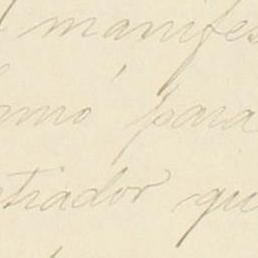 manifes
amó para
trador qu